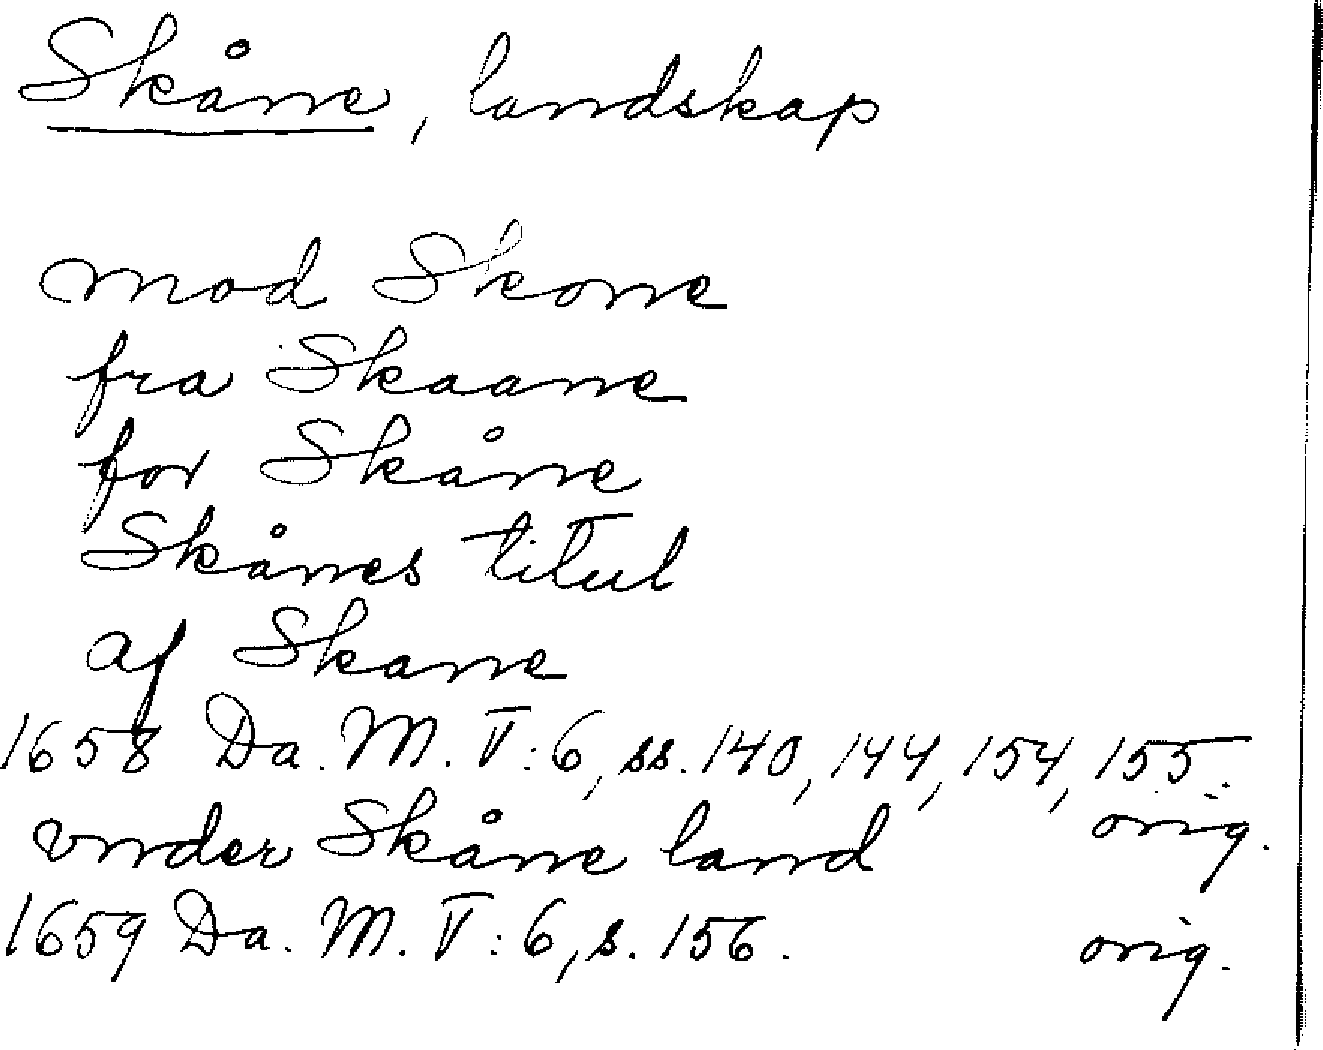 Skåne, landskap
mod Skone
fra Skaane
for Skåne
Skånes titul
af Skane
1658 Da. M. V:6, ss. 140, 144, 154, 155.
orig.
vnder Skåne land
1659 Da. M. V:6, s. 156.
orig.